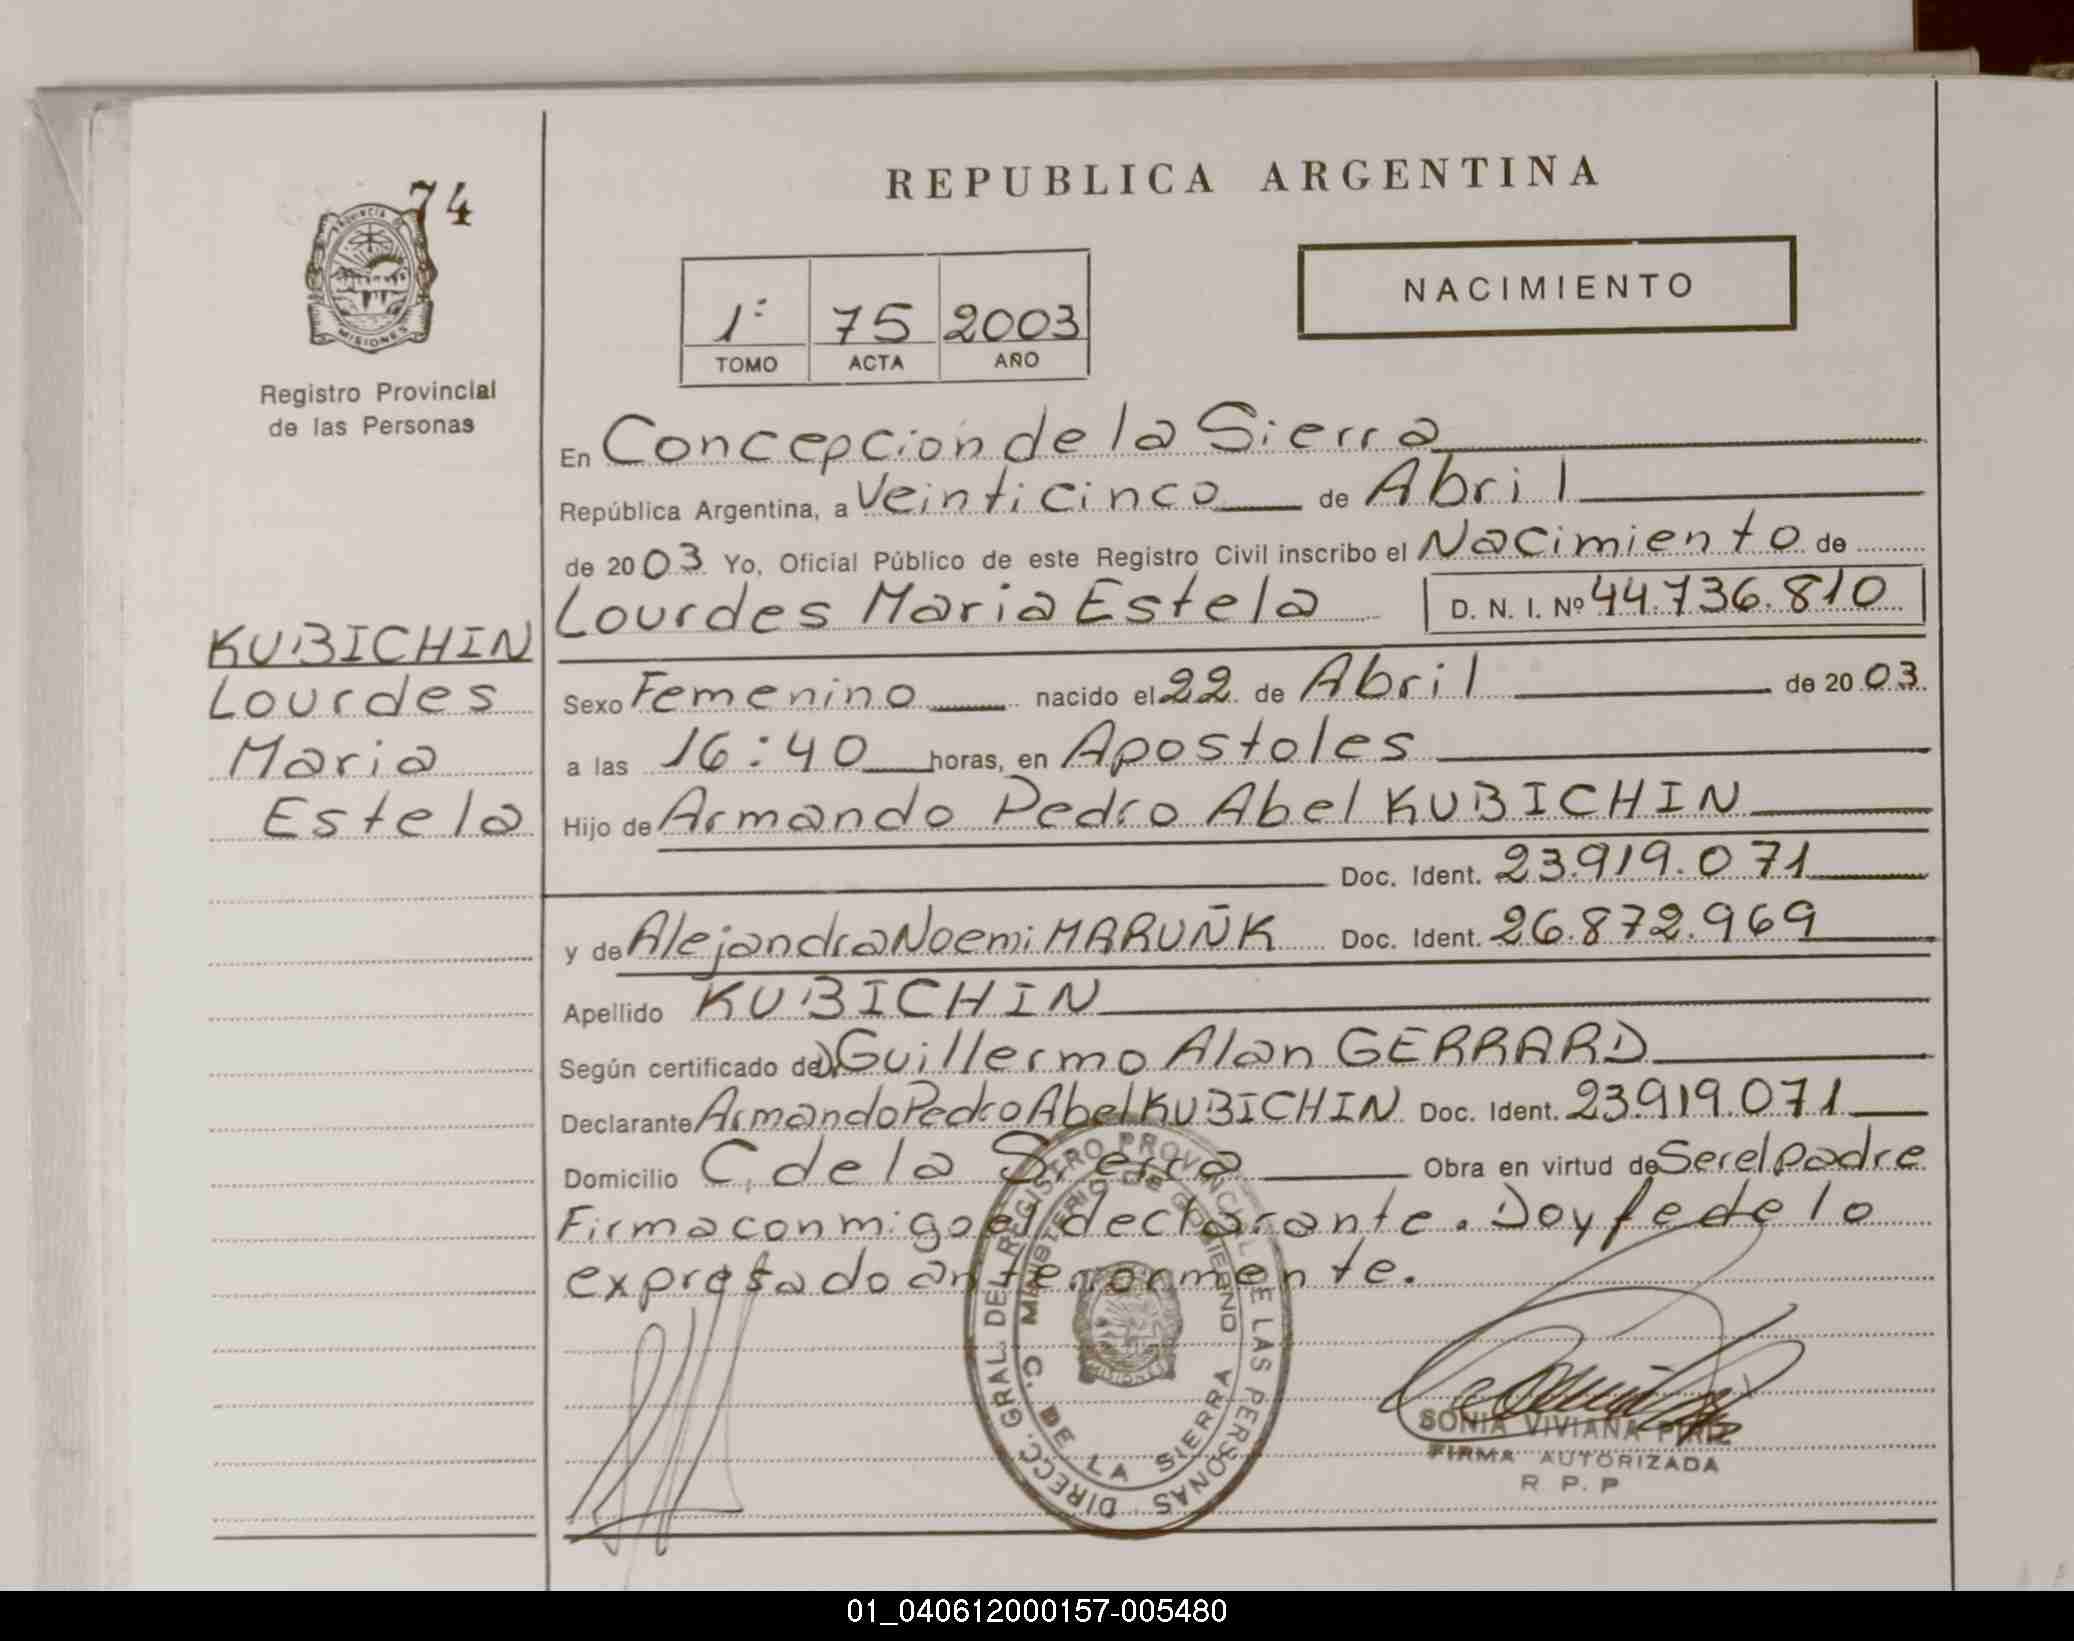 74
PROVINCIA DE
MISIONES
Registro Provincial
de las Personas
KUBICHIN
Lourdes
Maria
Estela
REPUBLICA ARGENTINA
1º 75 2003
TOMO ACTA AÑO
NACIMIENTO
En Concepcion de la Sierra
República Argentina, a Veinticinco de Abril
de 2003 Yo, Oficial Público de este Registro Civil inscribo el Nacimiento de
Lourdes Maria Estela D. N. I. Nº 44.736.810
Sexo Femenino nacido el 22 de Abril de 2003
a las 16:40 horas, en Apostoles
Hijo de Armando Pedro Abel KUBICHIN
Doc. Ident. 23.919.071
y de Alejandra Noemi MARUÑK Doc. Ident. 26.872.969
Apellido KUBICHIN
Según certificado de Guillermo Alan GERRARD
Declarante Armando Pedro Abel KUBICHIN Doc. Ident. 23.919.071
Domicilio C. de la Sierra Obra en virtud de Ser el padre
Firma conmigo el declarante. Doy fe de lo
expresado anteriormente.
DIRECC. GRAL. DEL REGISTRO PROVINCIAL DE LAS PERSONAS
MINISTERIO DE GOBIERNO
C. DE LA SIERRA
MISIONES
SONIA VIVIANA
FIRMA AUTORIZADA
R P. P
01_040612000157-005480